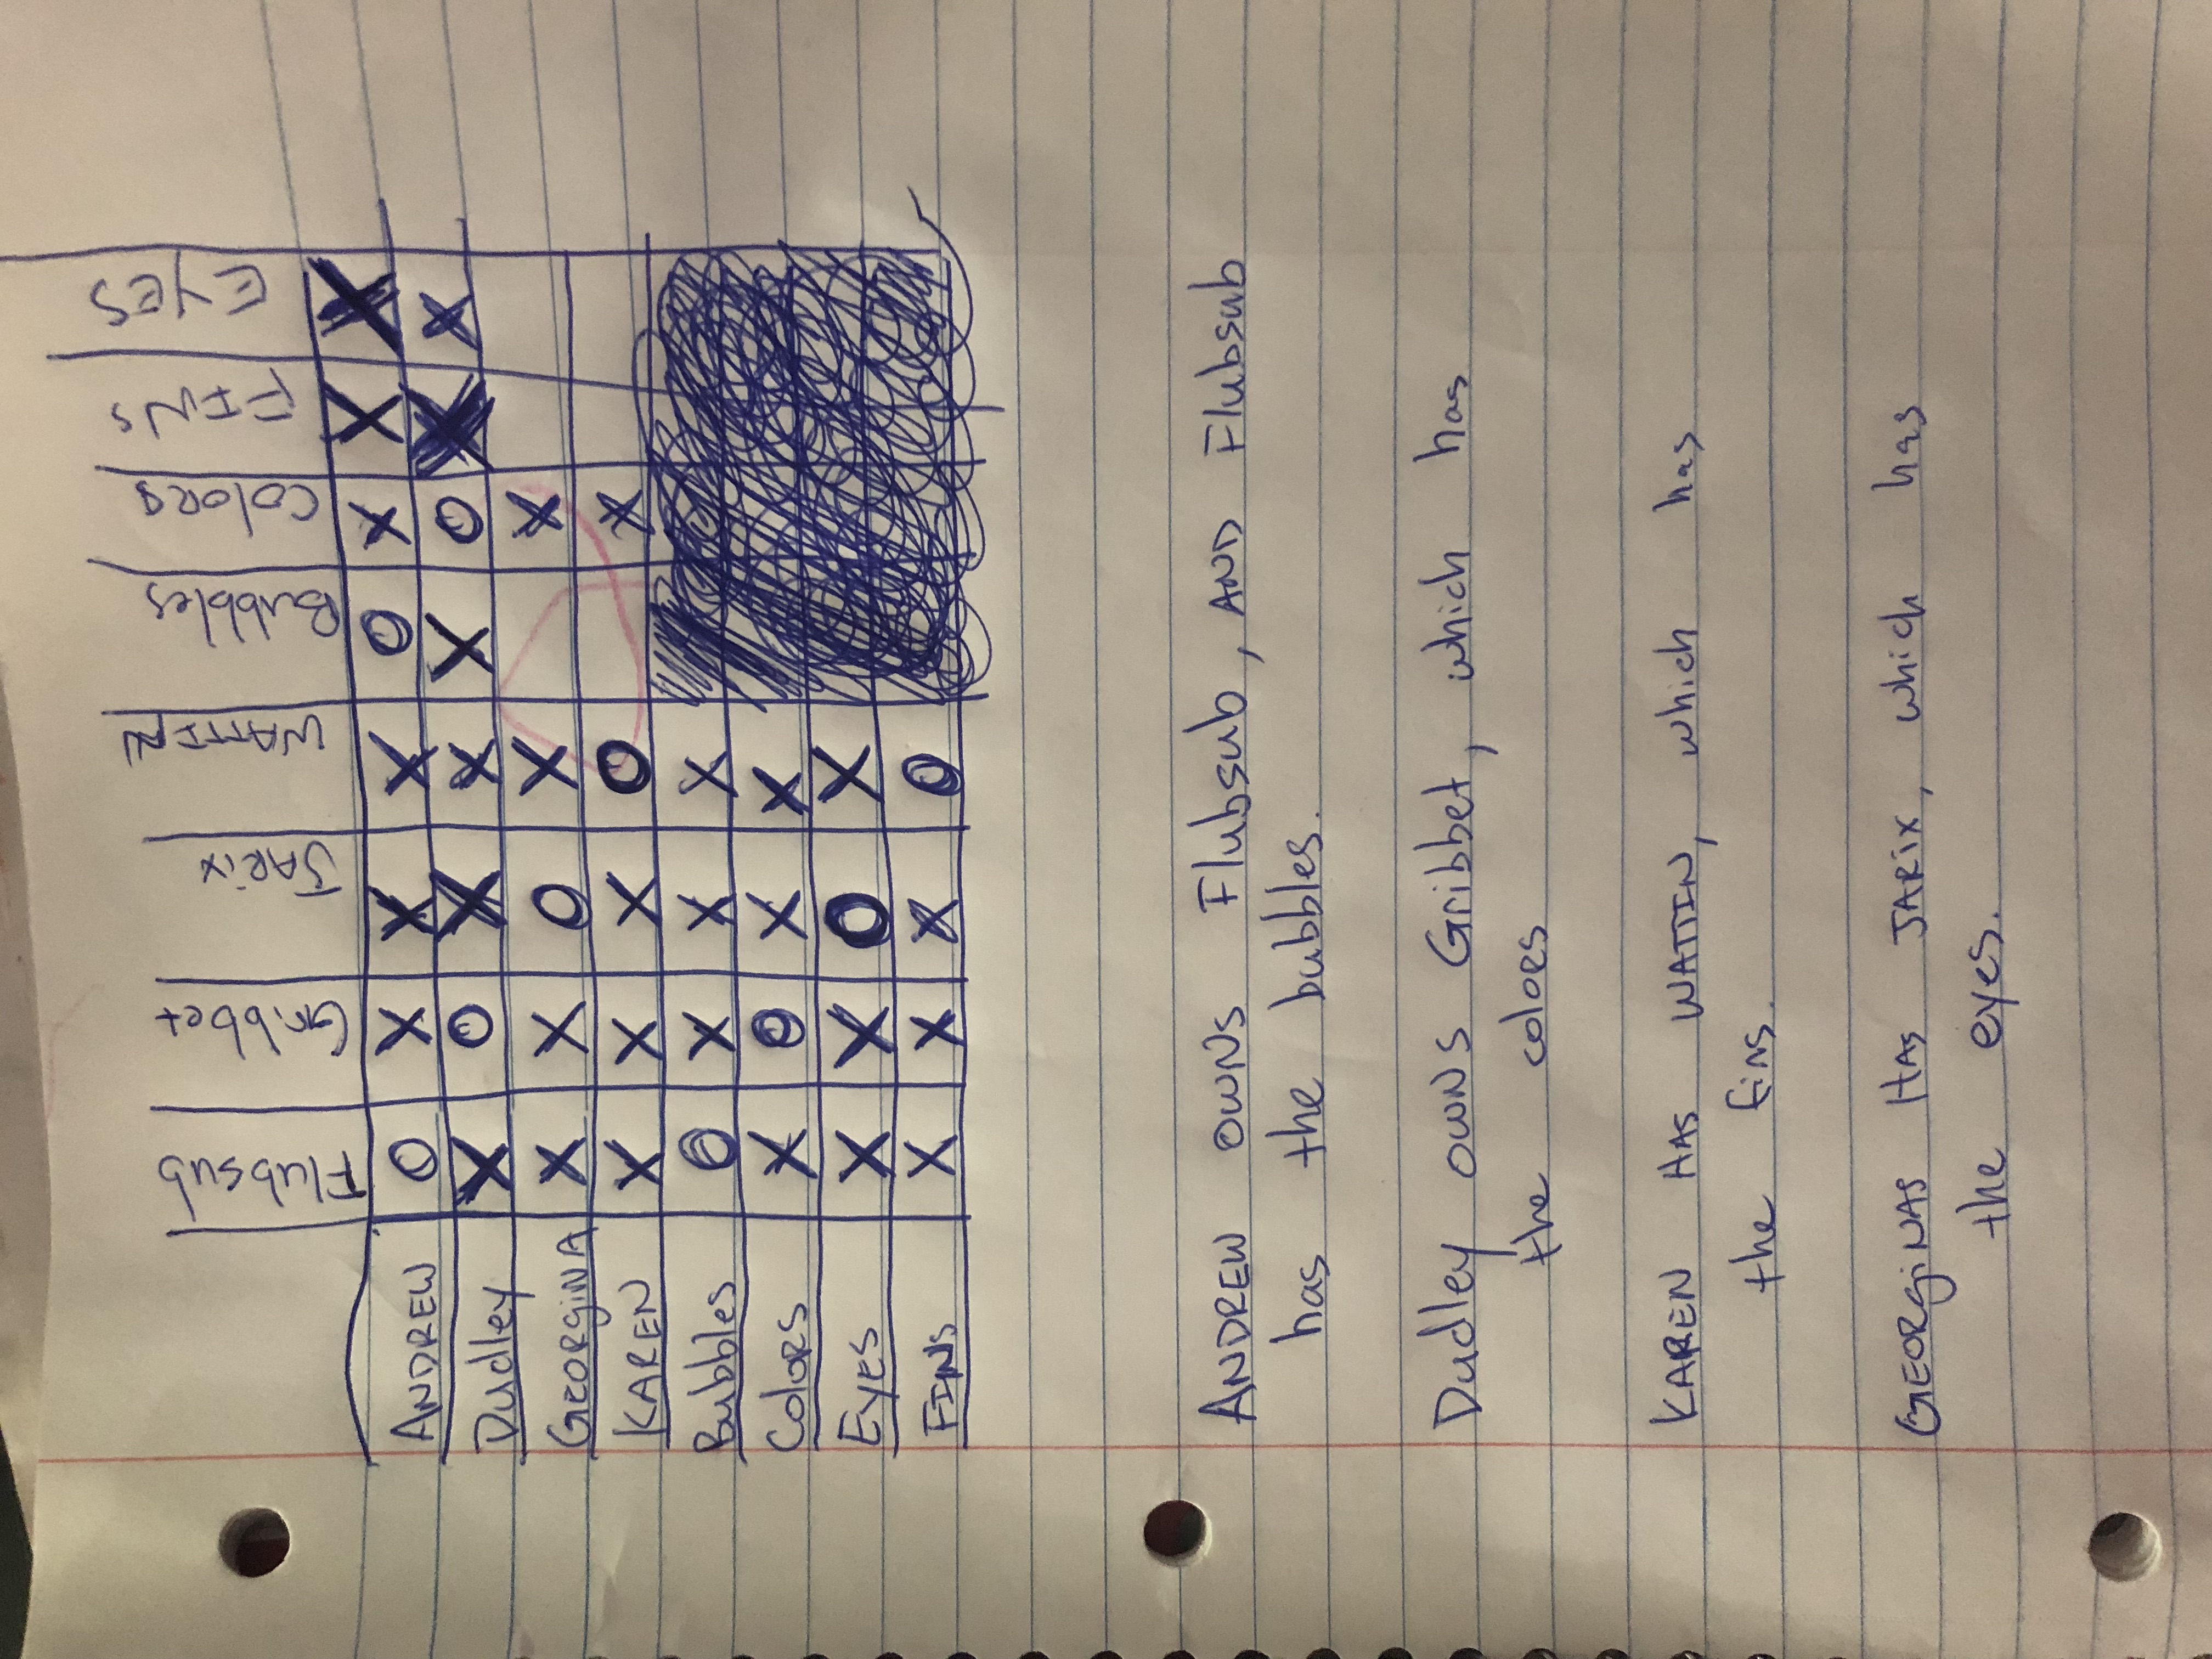 Flubsub Gribbet JARIX WATTIN Bubbles Colors FINS EYES
ANDREW O X X X O X X X
Dudley X O X X X O X X
GEORGINA X X O X X
KAREN X X X O X
Bubbles O X X X
Colors X O X X
EYES X X O X
FINS X X X O
ANDREW OWNS Flubsub, AND Flubsub
has the bubbles.
Dudley OWNS Gribbet, which has
the colors
KAREN HAS WATTIN, which has
the fins.
GEORGINAS HAS JARIX, which has
the eyes.